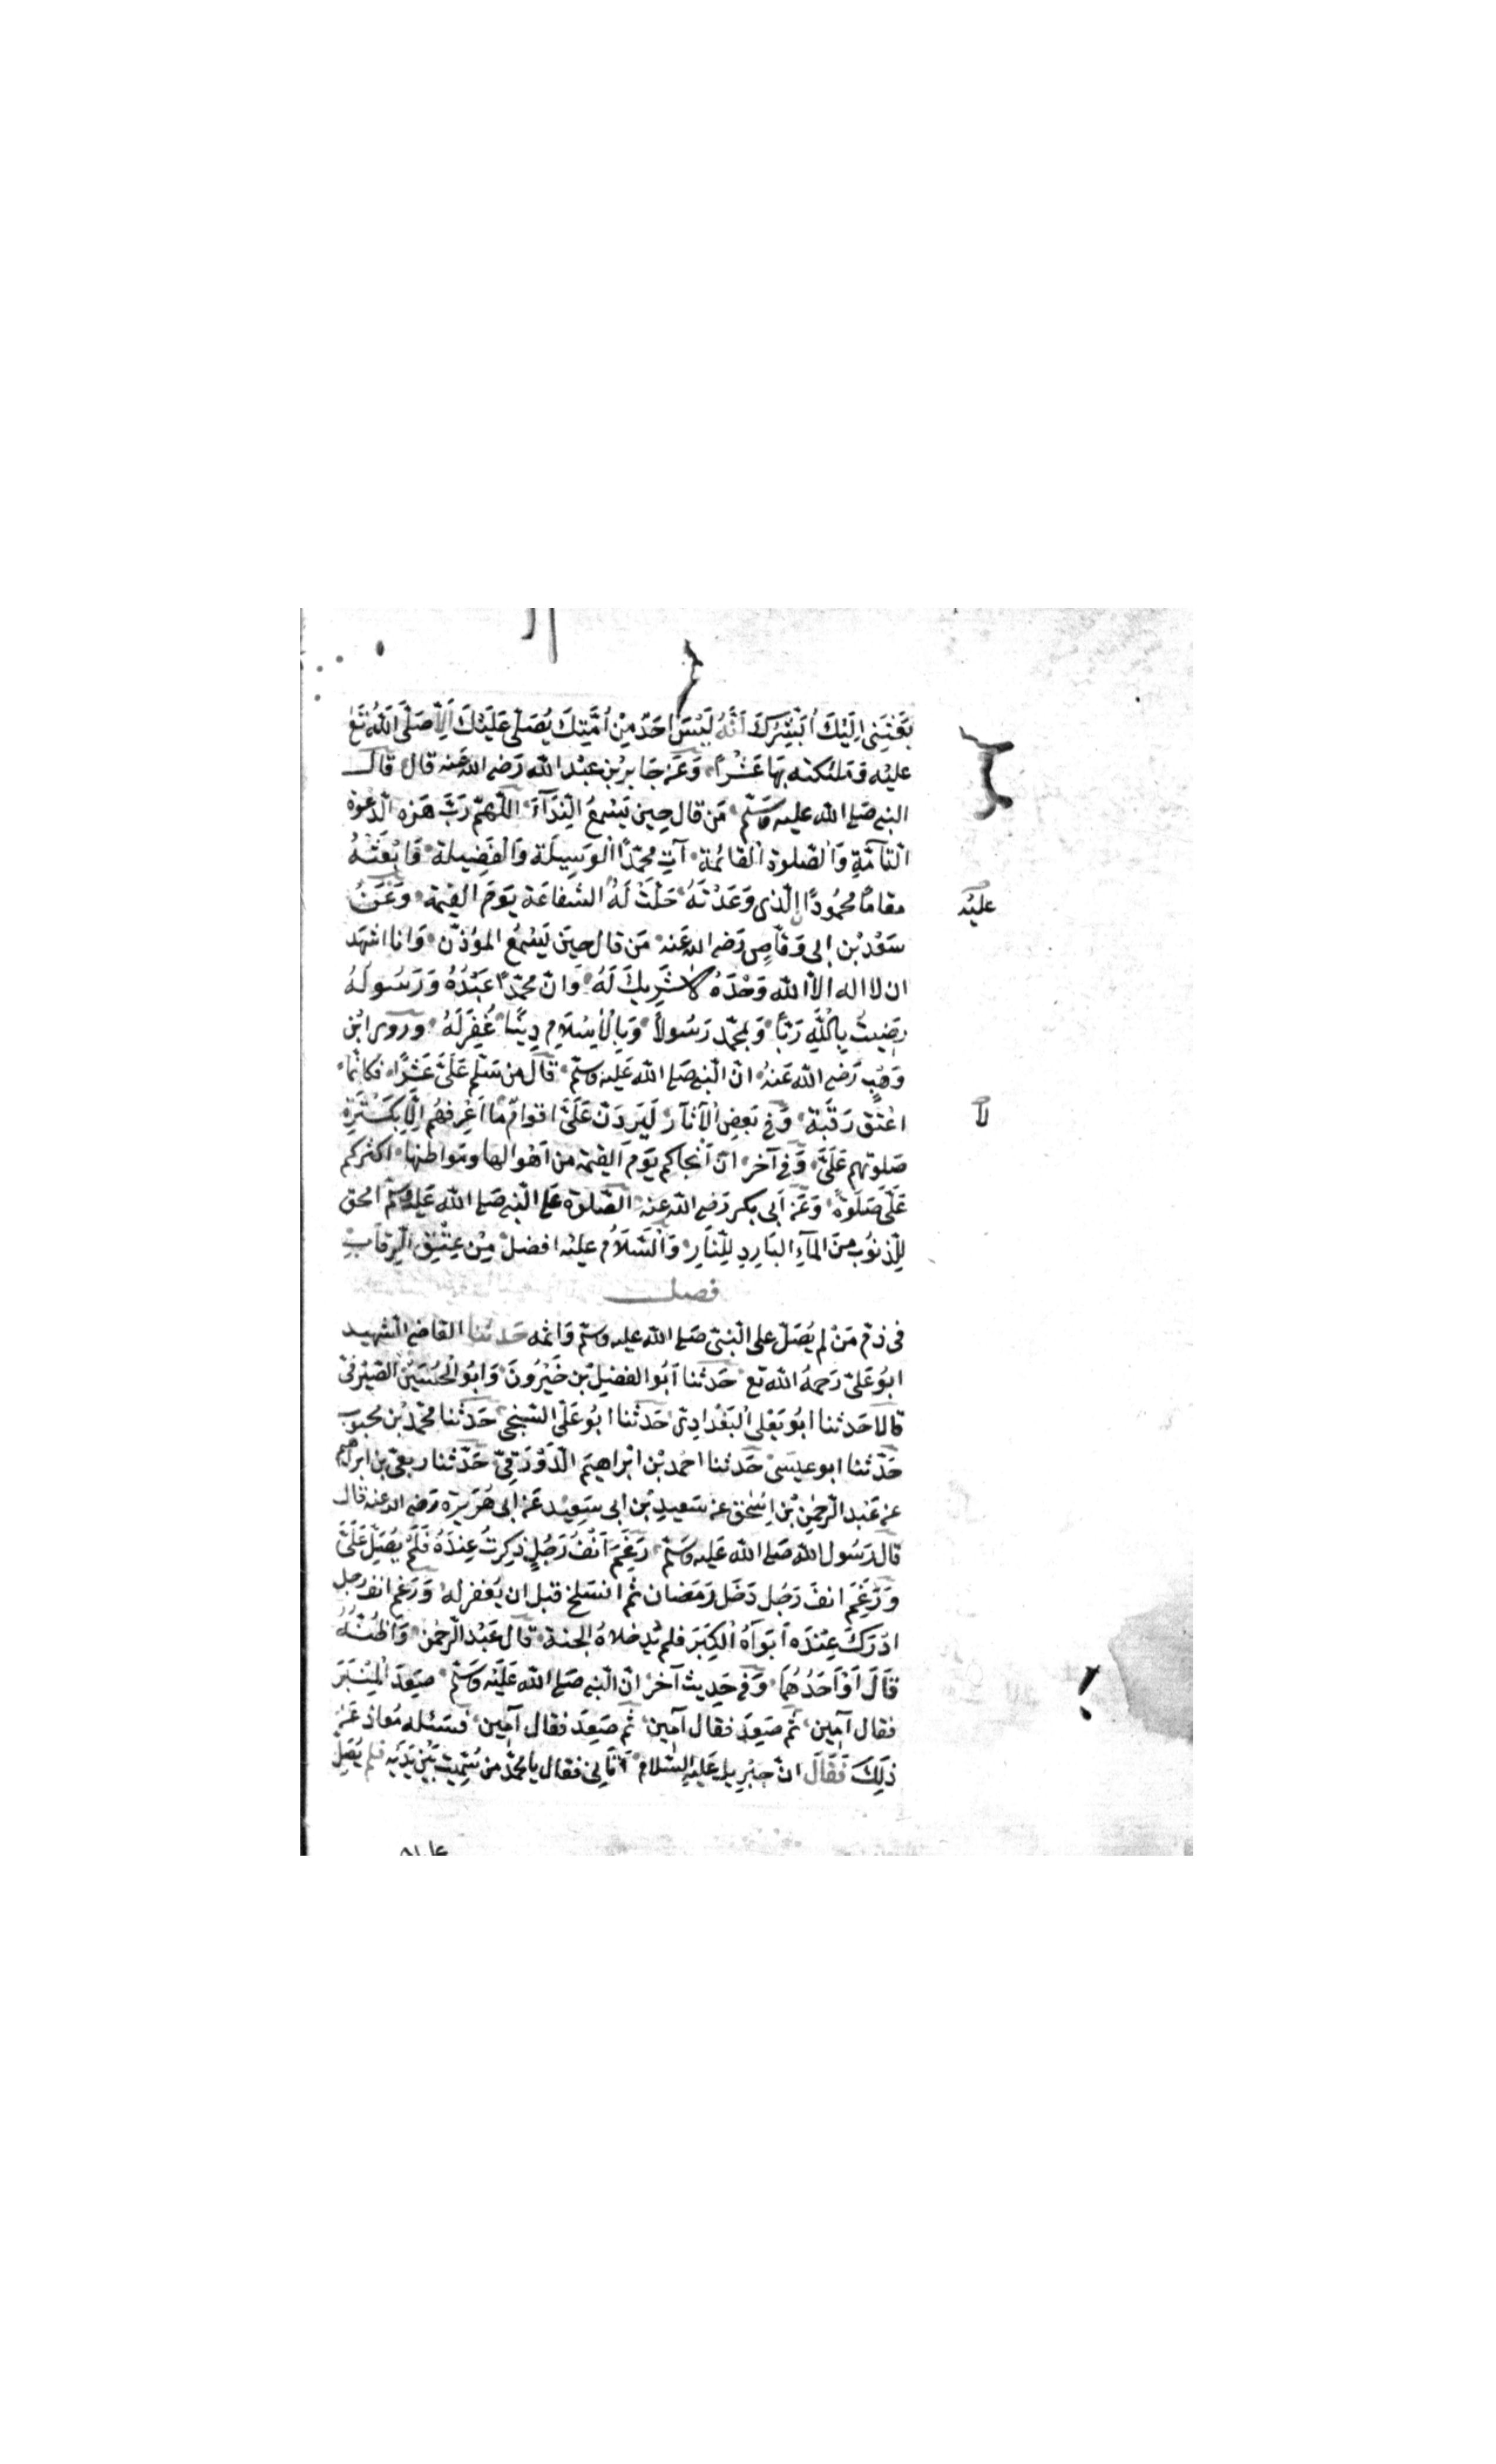 بَعَثَنِى اِلَيْكَ اُبَشِّرُكَ اَنَّهُ لَيْسَ اَحَدٌ مِنْ اُمَّتِكَ يُصَلِّى عَلَيْكَ اِلَّا صَلَّى اللّٰهُ تَعَ
عليْه وملئكته بهَا عَشْرًا وَعَنْ جَابرِ بْنِ عبْد الله رَضى الله عَنه قال قال
النبى صَلى الله عليه وَسَلّم مَن قال حِين يَسْمَعُ النِّدَآءَ اللّٰهُمّ رَبَّ هَذه الدَّعوة
التَآمَّةِ وَالصّلوة القائمة آتِ محمّدًا الْوَسِيلَة وَالْفَضِيلة وَابْعَثْهُ
مقامًا محمُودًا الَّذى وَعَدْتَهُ حَلّتْ لَهُ الشفاعَة يَومَ القيٰمة وَعَنْ
عليْه
سَعْد بْن ابى وَقّاصٍ رَضى الله عَنه مَن قال حِينَ يَسْمَع المؤذّن وَانا اشهَد
ان لا اله الا الله وَحْدَهُ لا شَرِيكَ لَهُ وَانّ محمّدًا عَبْدُهُ وَرَسُولُهُ
رَضِيتُ بِاللّٰهِ رَبًّا وَبمحمّد رَسُولًا وَبِالْاِسْلَامِ دِينًا غُفِرَ لَهُ وروى ابْن
وَهْبٍ رَضى الله عَنهُ انّ النّبى صَلى الله عَليه وسَلّم قال من سَلّم عَلَىَّ عَشْرًا فكانّما
اعْتَق رَقَبَة وَفى بَعضِ الْآثآر لَيَرِدَنّ عَلَىَّ اقوامٌ ما اَعْرِفهُم اِلَّا بِكَثْرَةِ
لا
صَلوتهم عَلَىَّ وَفى آخر انّ اَنْجاكم يَوم القيٰمة من اَهْوالها ومَواطنها اكثركم
عَلَىَّ صَلٰوةً وَعَنْ اَبى بكر رَضى الله عنه الصَّلوة على النّبى صَلى الله عَليه وسلّم امحق
لِلّذنوُب مِنَ المآءِ البَارِدِ لِلنَّارِ وَالْسَّلَامُ عليْه افضلُ مِنْ عِتْقِ الرِّقَابِ
فصل
فى ذمّ مَنْ لم يُصَلّ على النّبىّ صَلى الله عليه وسلّم وَاثمه حَدثنا القاضى الشهيد
ابوُ عَلىّ رَحمهُ الله تع حَدثنا اَبُو الفضيل بن خَيْرُونَ وَابُو الْحُسَيْن الصَيْرَفىّ
قالا حَدثنا ابُو يَعْلى الْبَغْدَادِىّ حَدثنا ابُو عَلى السّنجى حَدّثنا محمّد بْن محبُوب
حَدّثنا ابو عيسَى حَدثنا احمَد بْن ابْراهيَم الدَّوْرَقِىّ حَدّثنا ربعىّ بن ابراهيم
عن عَبْد الرّحمٰن بْن اِسْحٰق عن سَعيدِ بْن ابى سَعِيْد عَن ابى هُرَيْرة رَضى الله عنه قال
قال رَسُول الله صَلى الله عَليه وسَلّم رَغِمَ اَنْفُ رَجُلٍ ذُكِرتُ عِنْدَهُ فَلَمْ يُصَلِّ عَلَىَّ
وَرَغِمَ انفُ رَجُل دَخَل رَمَضان ثم انسَلخ قبْل ان يُغفر له وَرَغم انف رجل
ادْرَكَ عِنْدَه اَبَوَاهُ الْكِبَرَ فلم يُدخلاهُ الجنة قال عَبْد الرحمٰن وَاَظُنُّهُ
قَالَ اَوْ اَحَدُهُمَا وَفى حَدِيث آخر انّ النّبى صَلى الله عَليْه وَسَلّم صَعِدَ الْمِنْبَرَ
فقال آمين ثم صَعِدَ فقال آمين ثم صَعِدَ فقال آمين فسَئله مُعاذ عَنْ
ذٰلِكَ فَقَالَ انّ جبْرِيل عَليهِ السّلام اَتَانِى فقال يا محمّد من سُمِّيتَ بَيْن يَدَيْه فلم يُصَلِّ